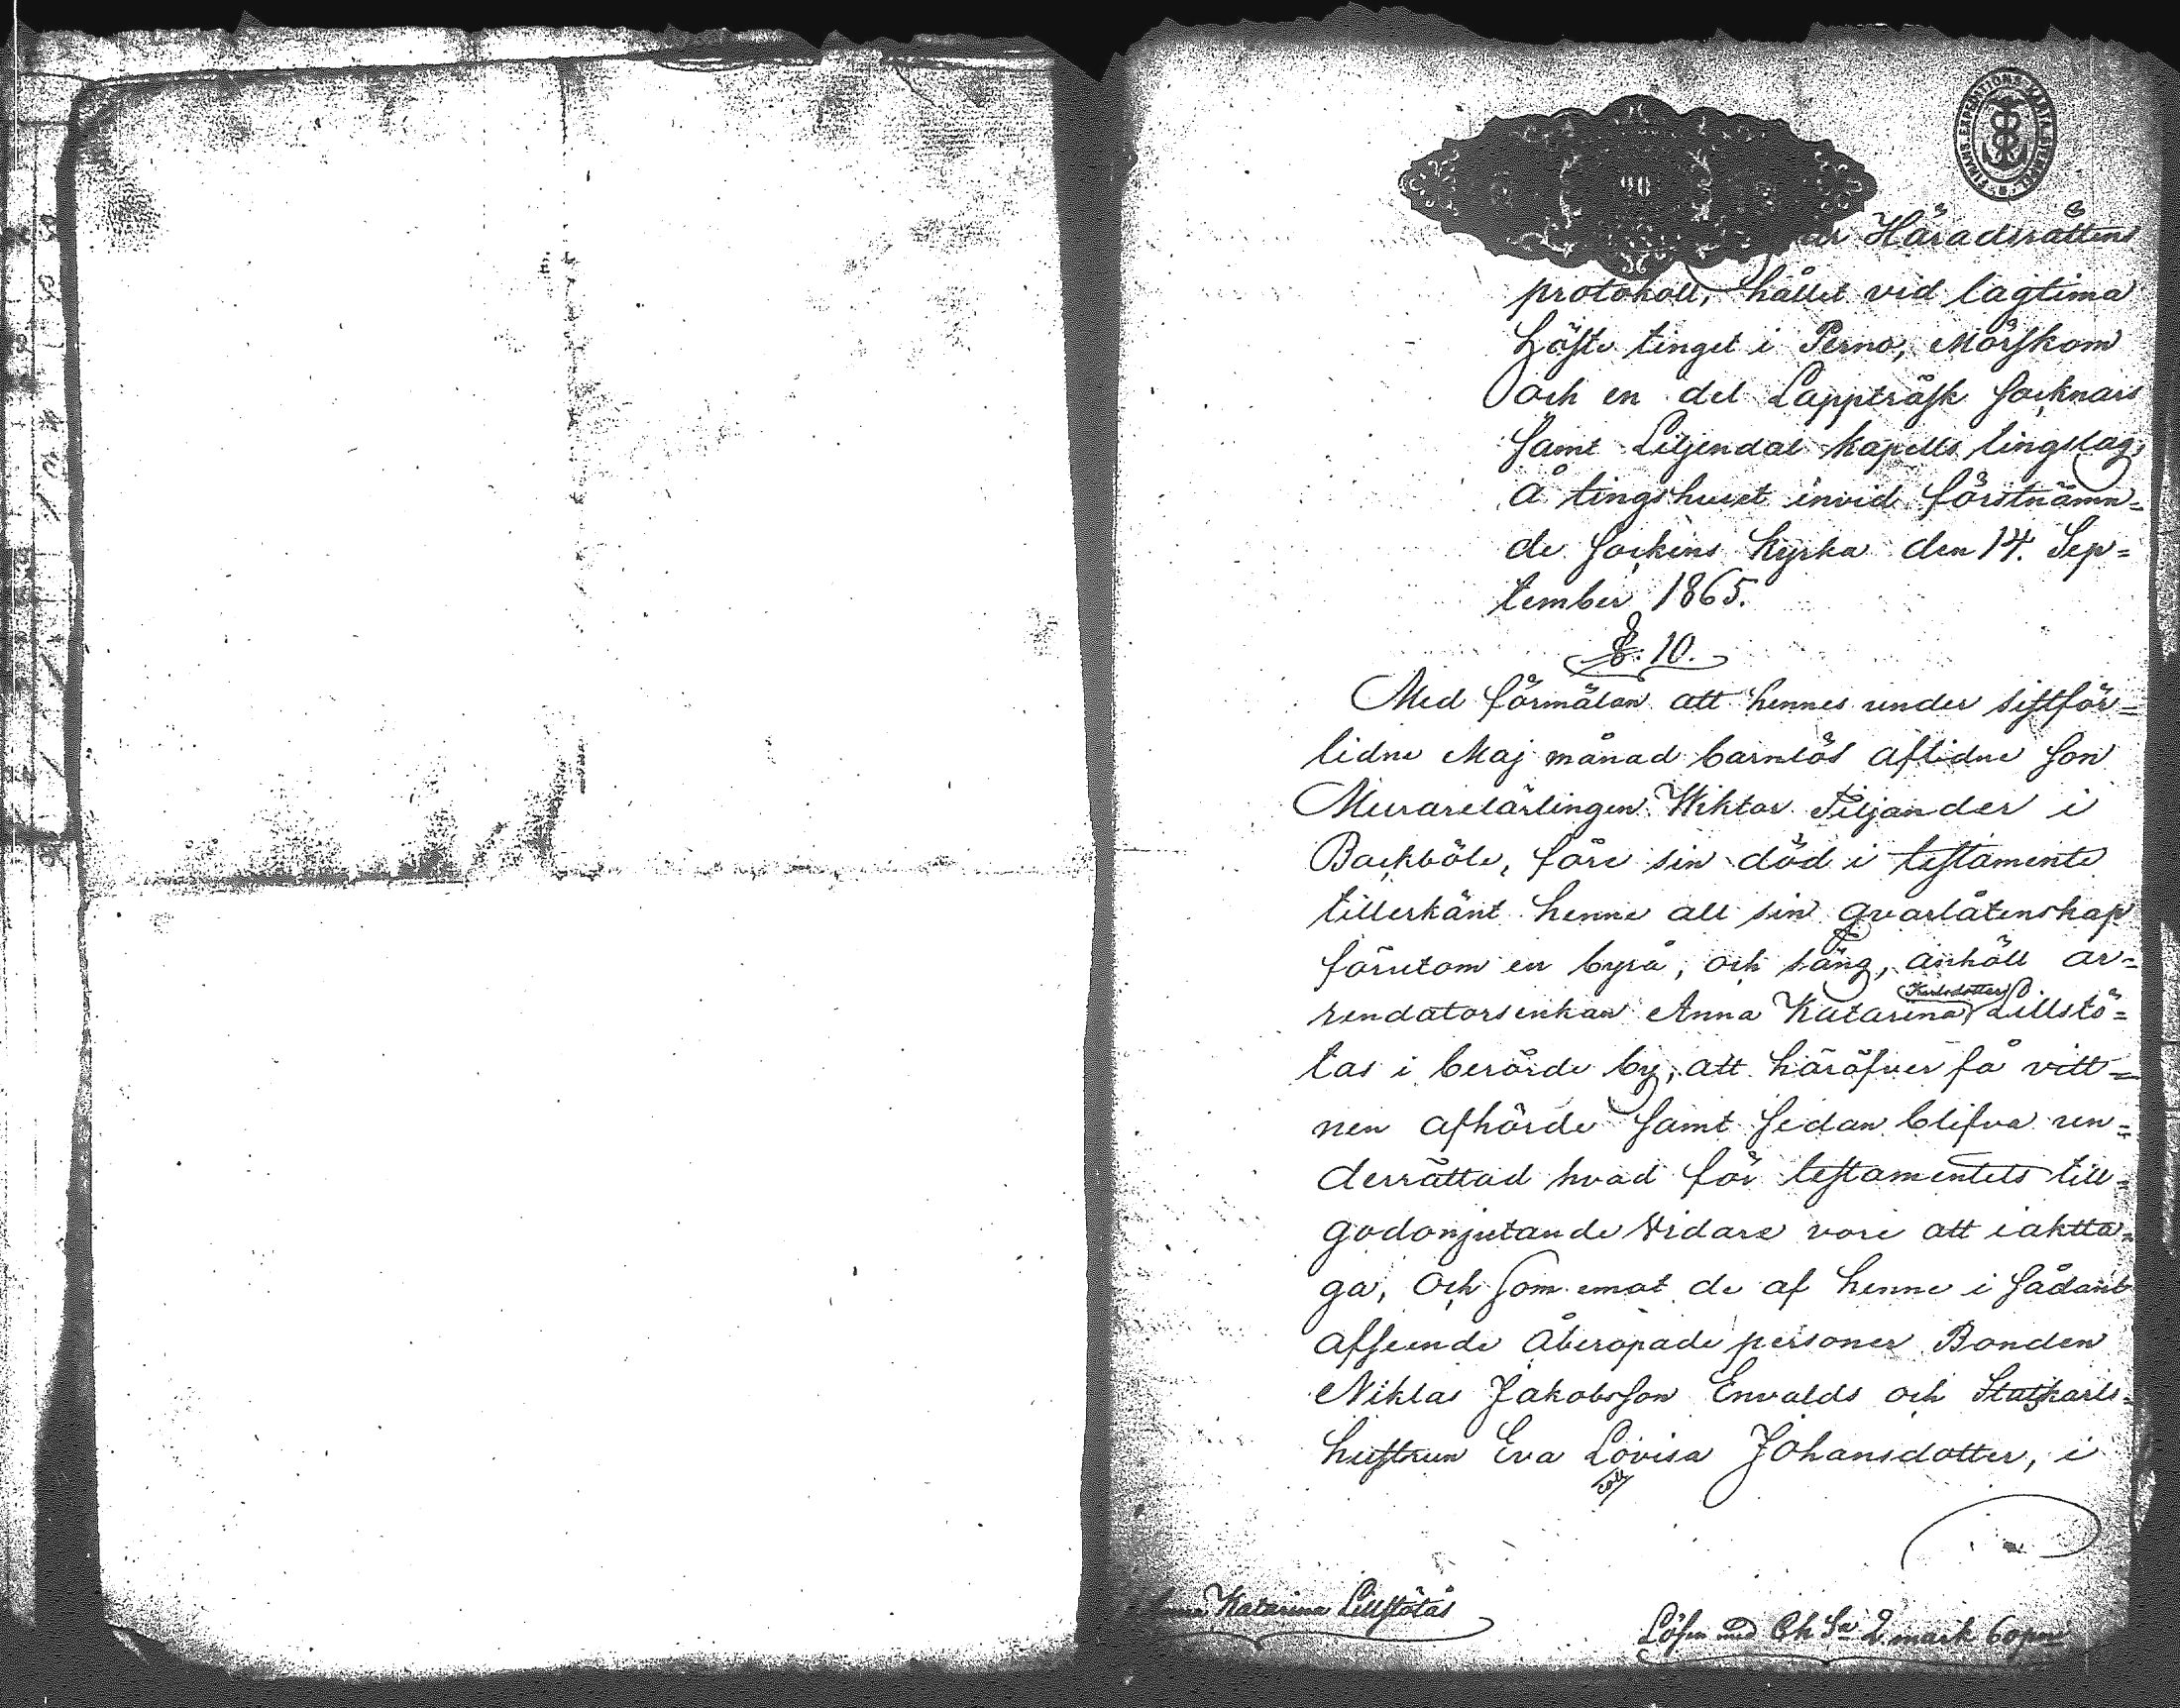 Häradsrättens
protokoll, hållet vid lagtima
Höste tinget i Perno, Mörskom
och en del Lappträsk socknars
samt Liljendal kapells tingslag,
å tingshuset invid förstnämn=
de sockens kyrka den 14. Sep=
tember 1865.
§. 10.
Med förmälan att hennes under sistför=
lidne Maj månad barnlös aflidne son
Murarelärlingen Wiktor Siljander i
Backböle, före sin död i testamente
tillerkänt henne all sin qvarlåtenskap
förutom en byrå, och säng, anhöll ar=
Karlsdotter
rendatorsenkan Anna Katarina Lillstö=
tas i berörde by, att häröfver få vitt=
nen afhörde samt sedan blifva un=
derrättad hvad för testamentets till=
godonjutande vidare vore att iaktta=
ga, och som emot de af henne i sådant
afseende åberopade personer Bonden
Niklas Jakobsson Envalds och Statkarls=
hustrun Eva Lovisa Johansdotter, i
Anna Katarina Lillstötas
Lösen med Ch Sa 2 mark 60 pni